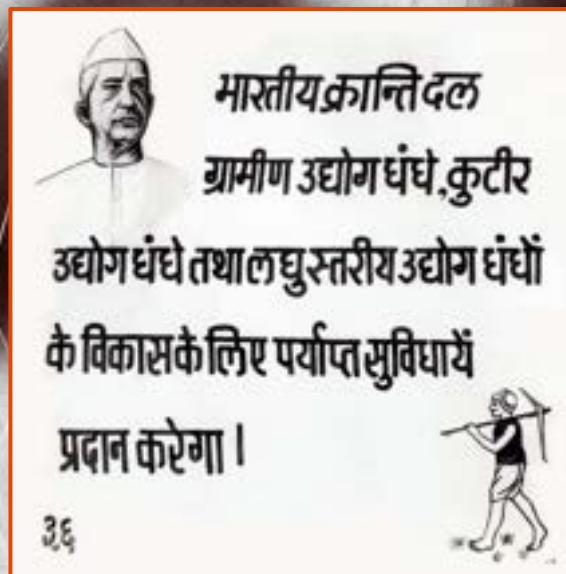 भारतीय क्रान्ति दल
ग्रामीण उद्योग धंधे, कुटीर
उद्योग धंधे तथा लघु स्तरीय उद्योग धंधों
के विकास के लिए पर्याप्त सुविधायें
प्रदान करेगा।
३६